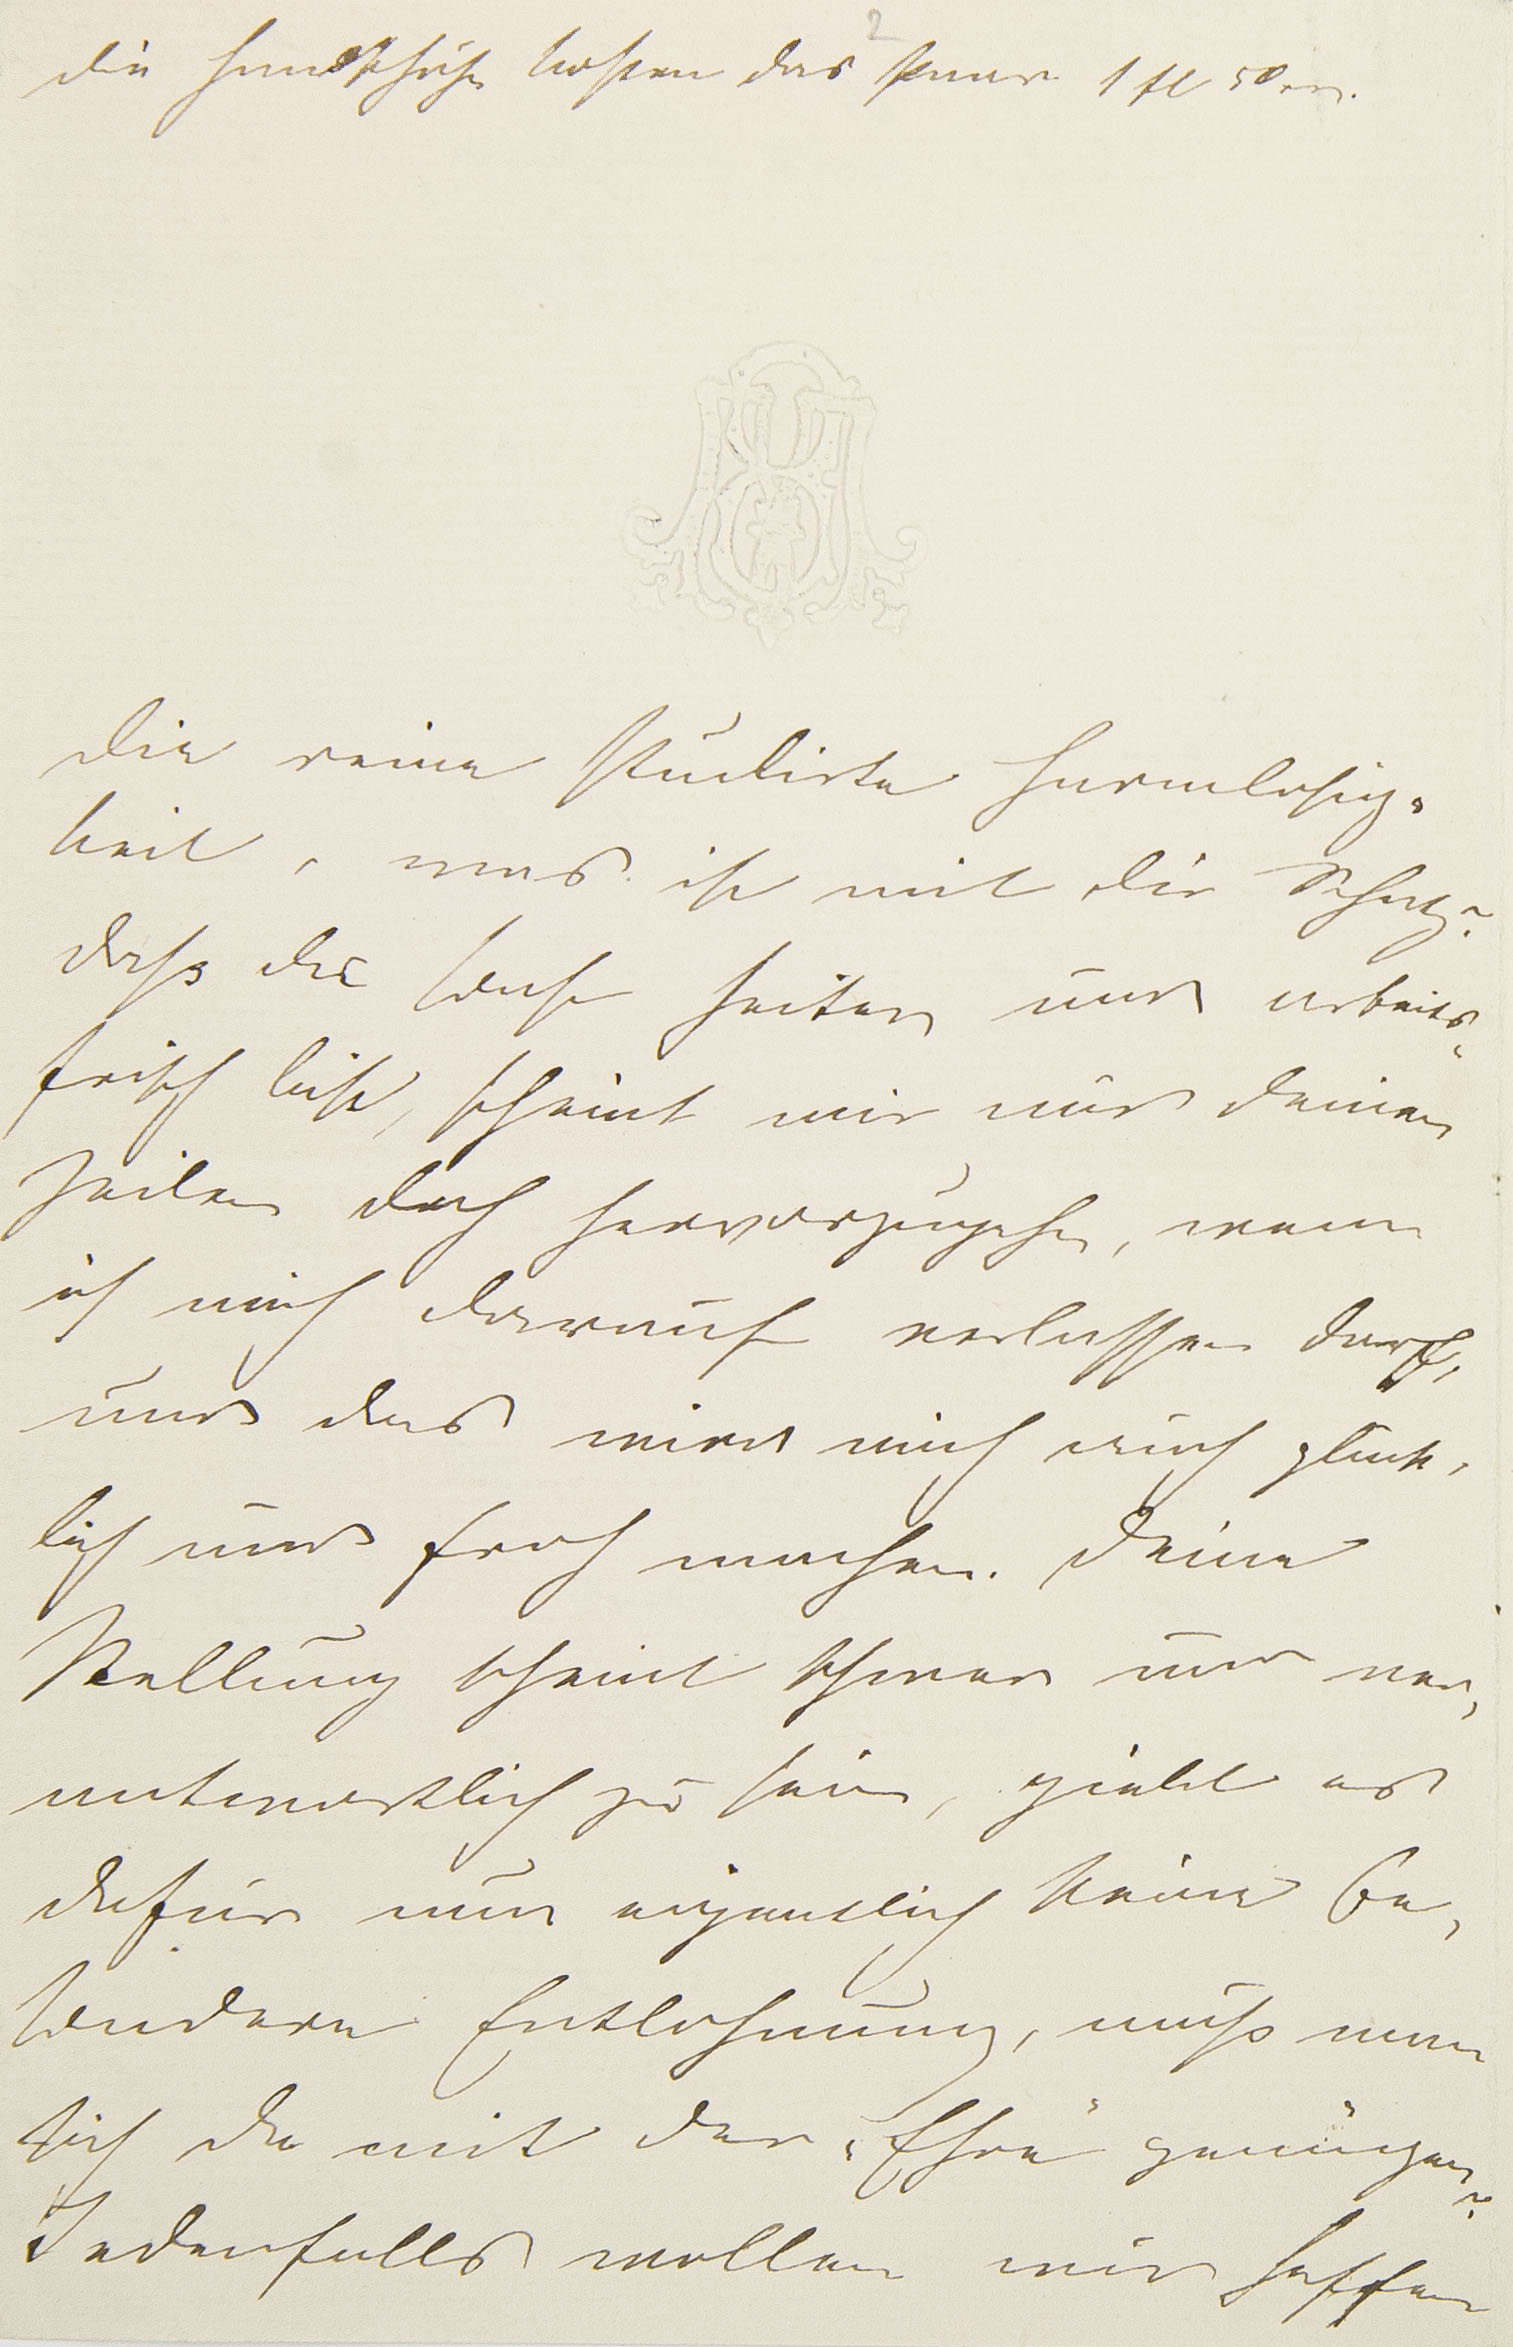 die Handschuhe kosten das Paar 1 fl 50 xr.
2
die reine studirte Harmlosig-
keit, was ist mit dir Schatz?
daß du wohl heiter und arbeits-
frisch bist, scheint mir aus deinen
Zeilen doch hervorzugehen, wenn
ich mich darauf verlassen darf,
und das wird mich auch glück-
lich und froh machen. Deine
Stellung scheint schwer und ver-
antwortlich zu sein, giebt es
dafür nun eigentlich keine be-
sondere Entlohnung, muß man
sich da mit der „Ehre" genügen?
Jedenfalls wollen wir hoffen